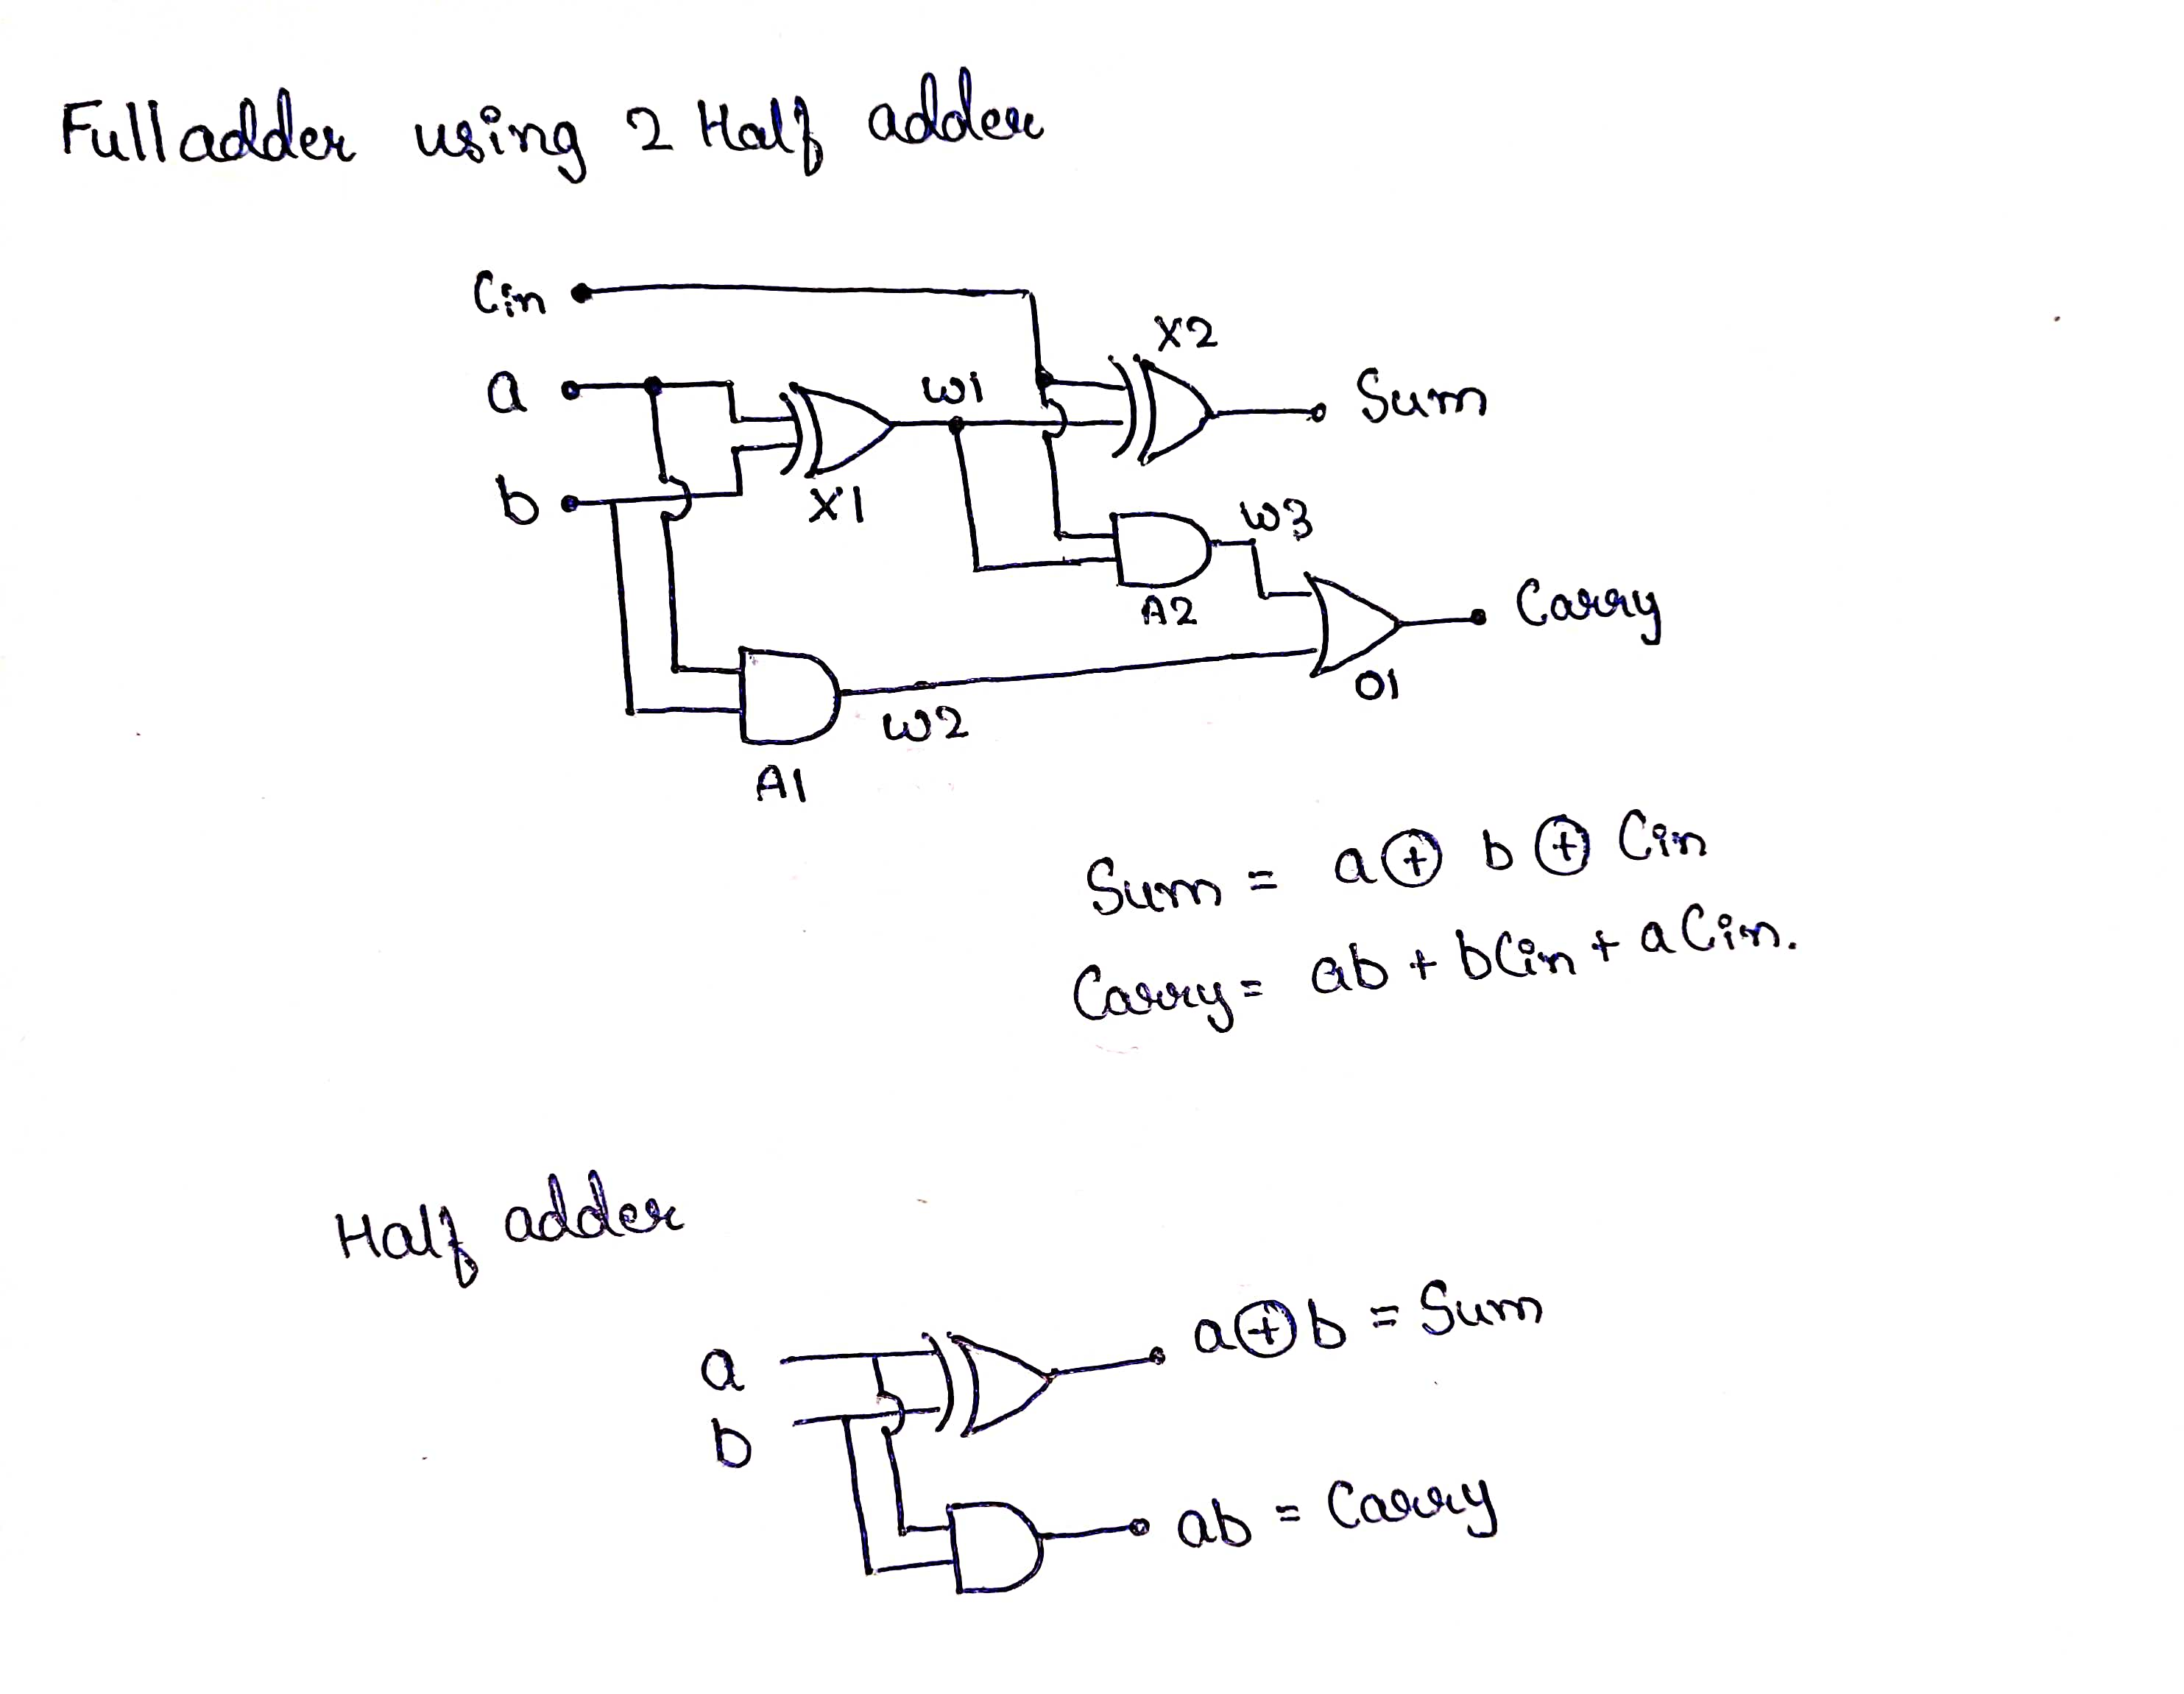 Full adder using 2 Half adder
Cin
X2
a
w1
Sum
b
X1
w3
A2
Carry
O1
w2
A1
Sum = a ⊕ b ⊕ Cin
Carry = ab + bCin + aCin.
Half adder
a
a⊕b = Sum
b
ab = Carry